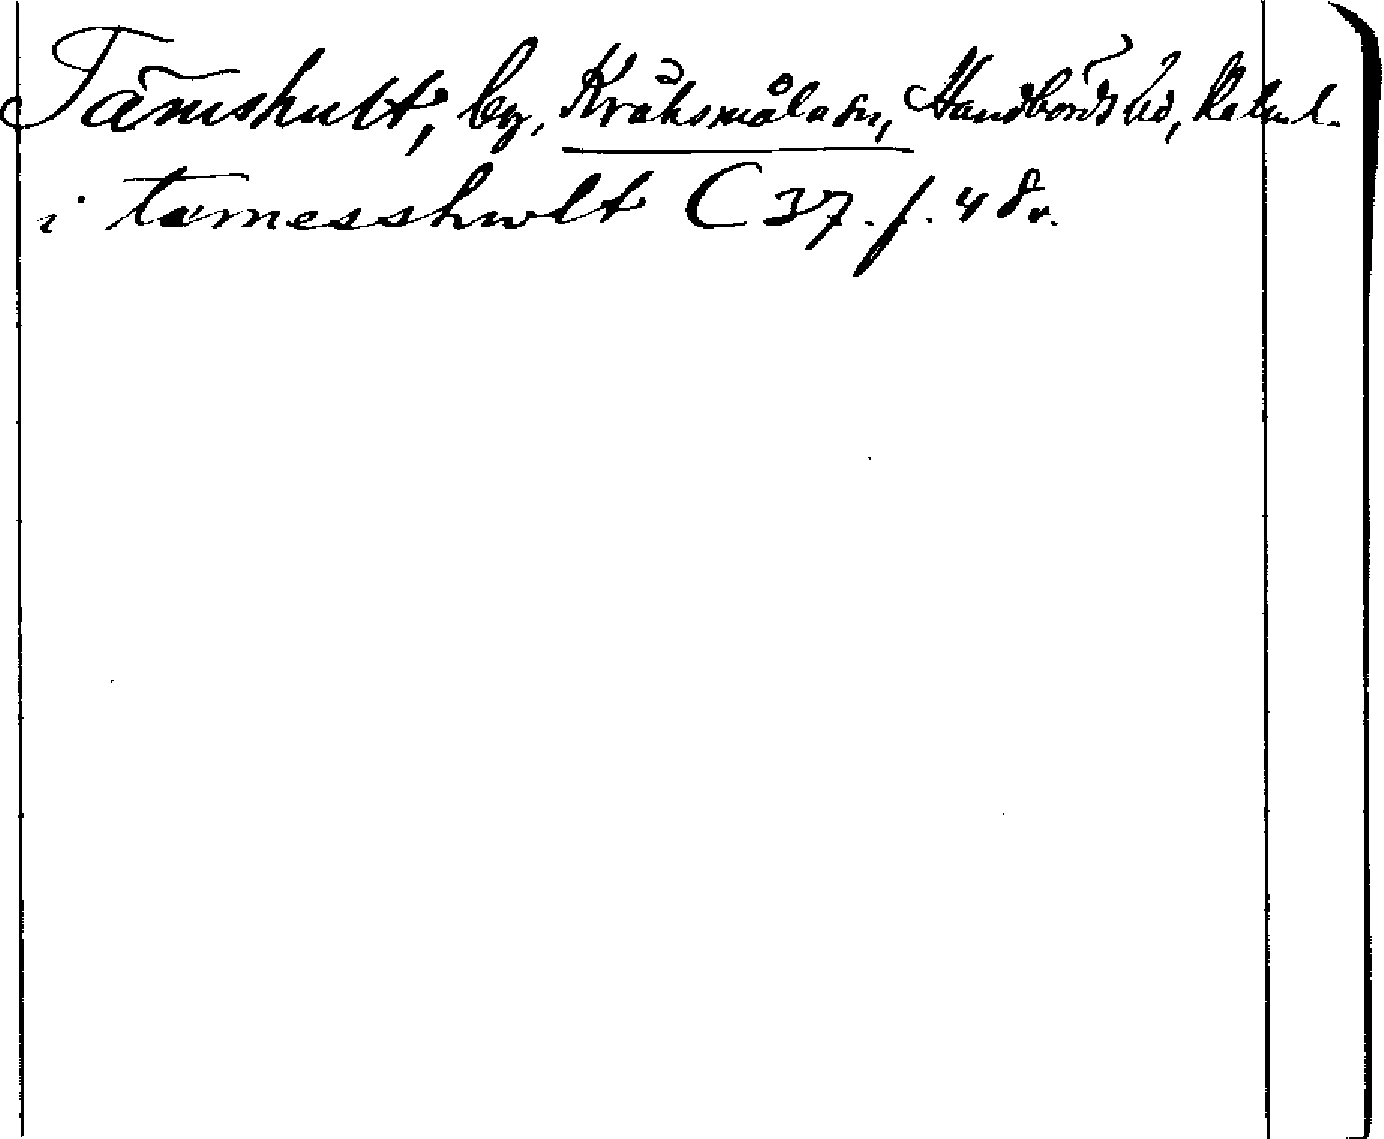 Tämshult, by, Kråksmåla sn, Handbörds hd, Kalm. l.
i temesshwlt C 37. f. 48v.